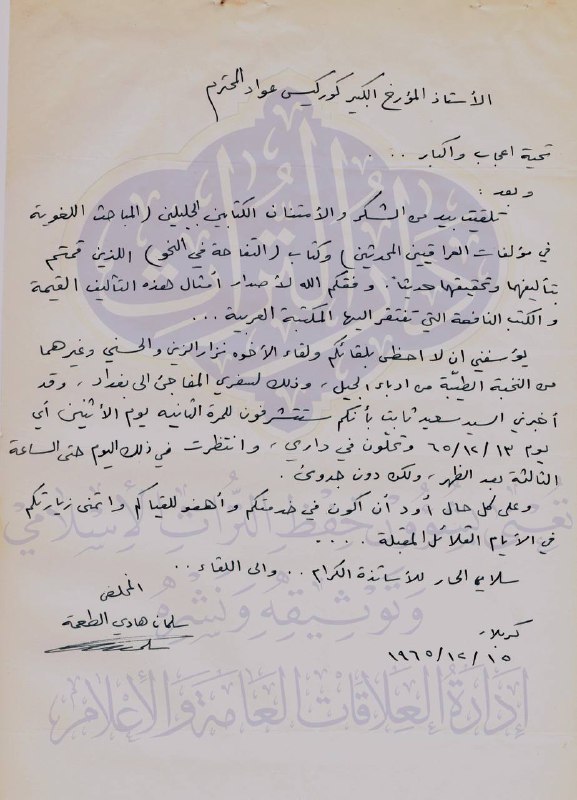 الأستاذ المؤرخ الكبير كوركيس عواد المحترم
تحية اعجاب واكبار . . .
وبعد :
تلقيت بيد من الشكر والأمتنان الكتابين الجليلين (المباحث اللغوية
في مؤلفات العراقيين المحدثين) وكتاب (التفاحة في النحو) اللذين قمتم
بتأليفهما وتحقيقهما حديثاً . وفقكم الله لأصدار أمثال هذه التآليف القيمة
والكتب النافعة التي تفتقر اليها المكتبة العربية ...
يؤسفني ان لا احظى بلقائكم ولقاء الأخوه نزار الزين والحسني وغيرهما
من النخبة الطيّبة من ادباء الجيل ، وذلك لسفري المفاجئ الى بغداد ، وقد
أخبرني السيد سعيد ثابت بأنكم ستتشرفون للمرة الثانيه يوم الأثنين أي
يوم ٦٥/١٢/١٣ وتحلون في داري ، وانتظرت في ذلك اليوم حتى الساعة
الثالثة بعد الظهر ، ولكن دون جدوىٰ .
وعلى كل حال أود أن أكون في خدمتكم وأهفو للقياكم واتمنى زيارتكم
في الأيام القلائل المقبلة . . . .
سلامي الحار للأساتذة الكرام . . والى اللقاء . .
المخلص
سلمان هادي الطعمة
كربلاء
١٩٦٥/١٢/١٥
دار التراث
تعنى بشؤون حفظ التراث الإسلامي
وتوثيقه ونشره
إدارة العلاقات العامة والأعلام